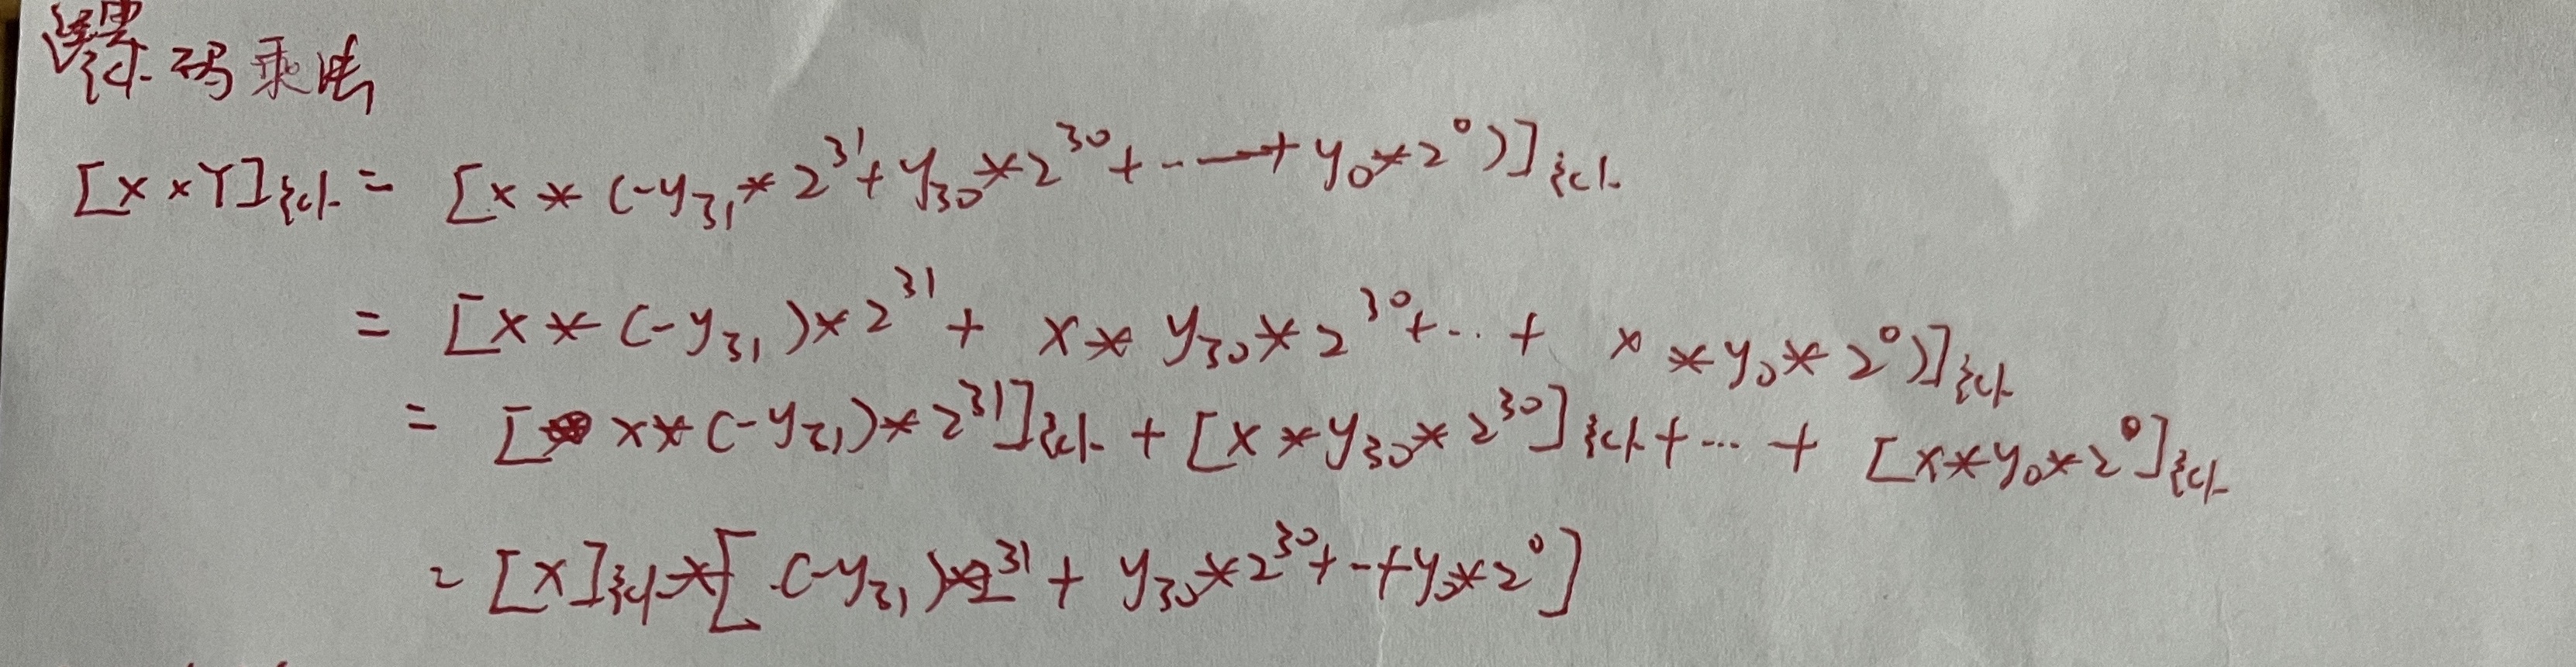 补码乘法
[X×Y]补 = [X * (-y₃₁ * 2³¹ + y₃₀ * 2³⁰ + ... + y₀ * 2⁰)]补
= [X * (-y₃₁) * 2³¹ + X * y₃₀ * 2³⁰ + ... + X * y₀ * 2⁰)]补
= [X * (-y₃₁) * 2³¹]补 + [X * y₃₀ * 2³⁰]补 + ... + [X * y₀ * 2⁰]补
= [X]补 * [(-y₃₁) * 2³¹ + y₃₀ * 2³⁰ + ... + y₀ * 2⁰]